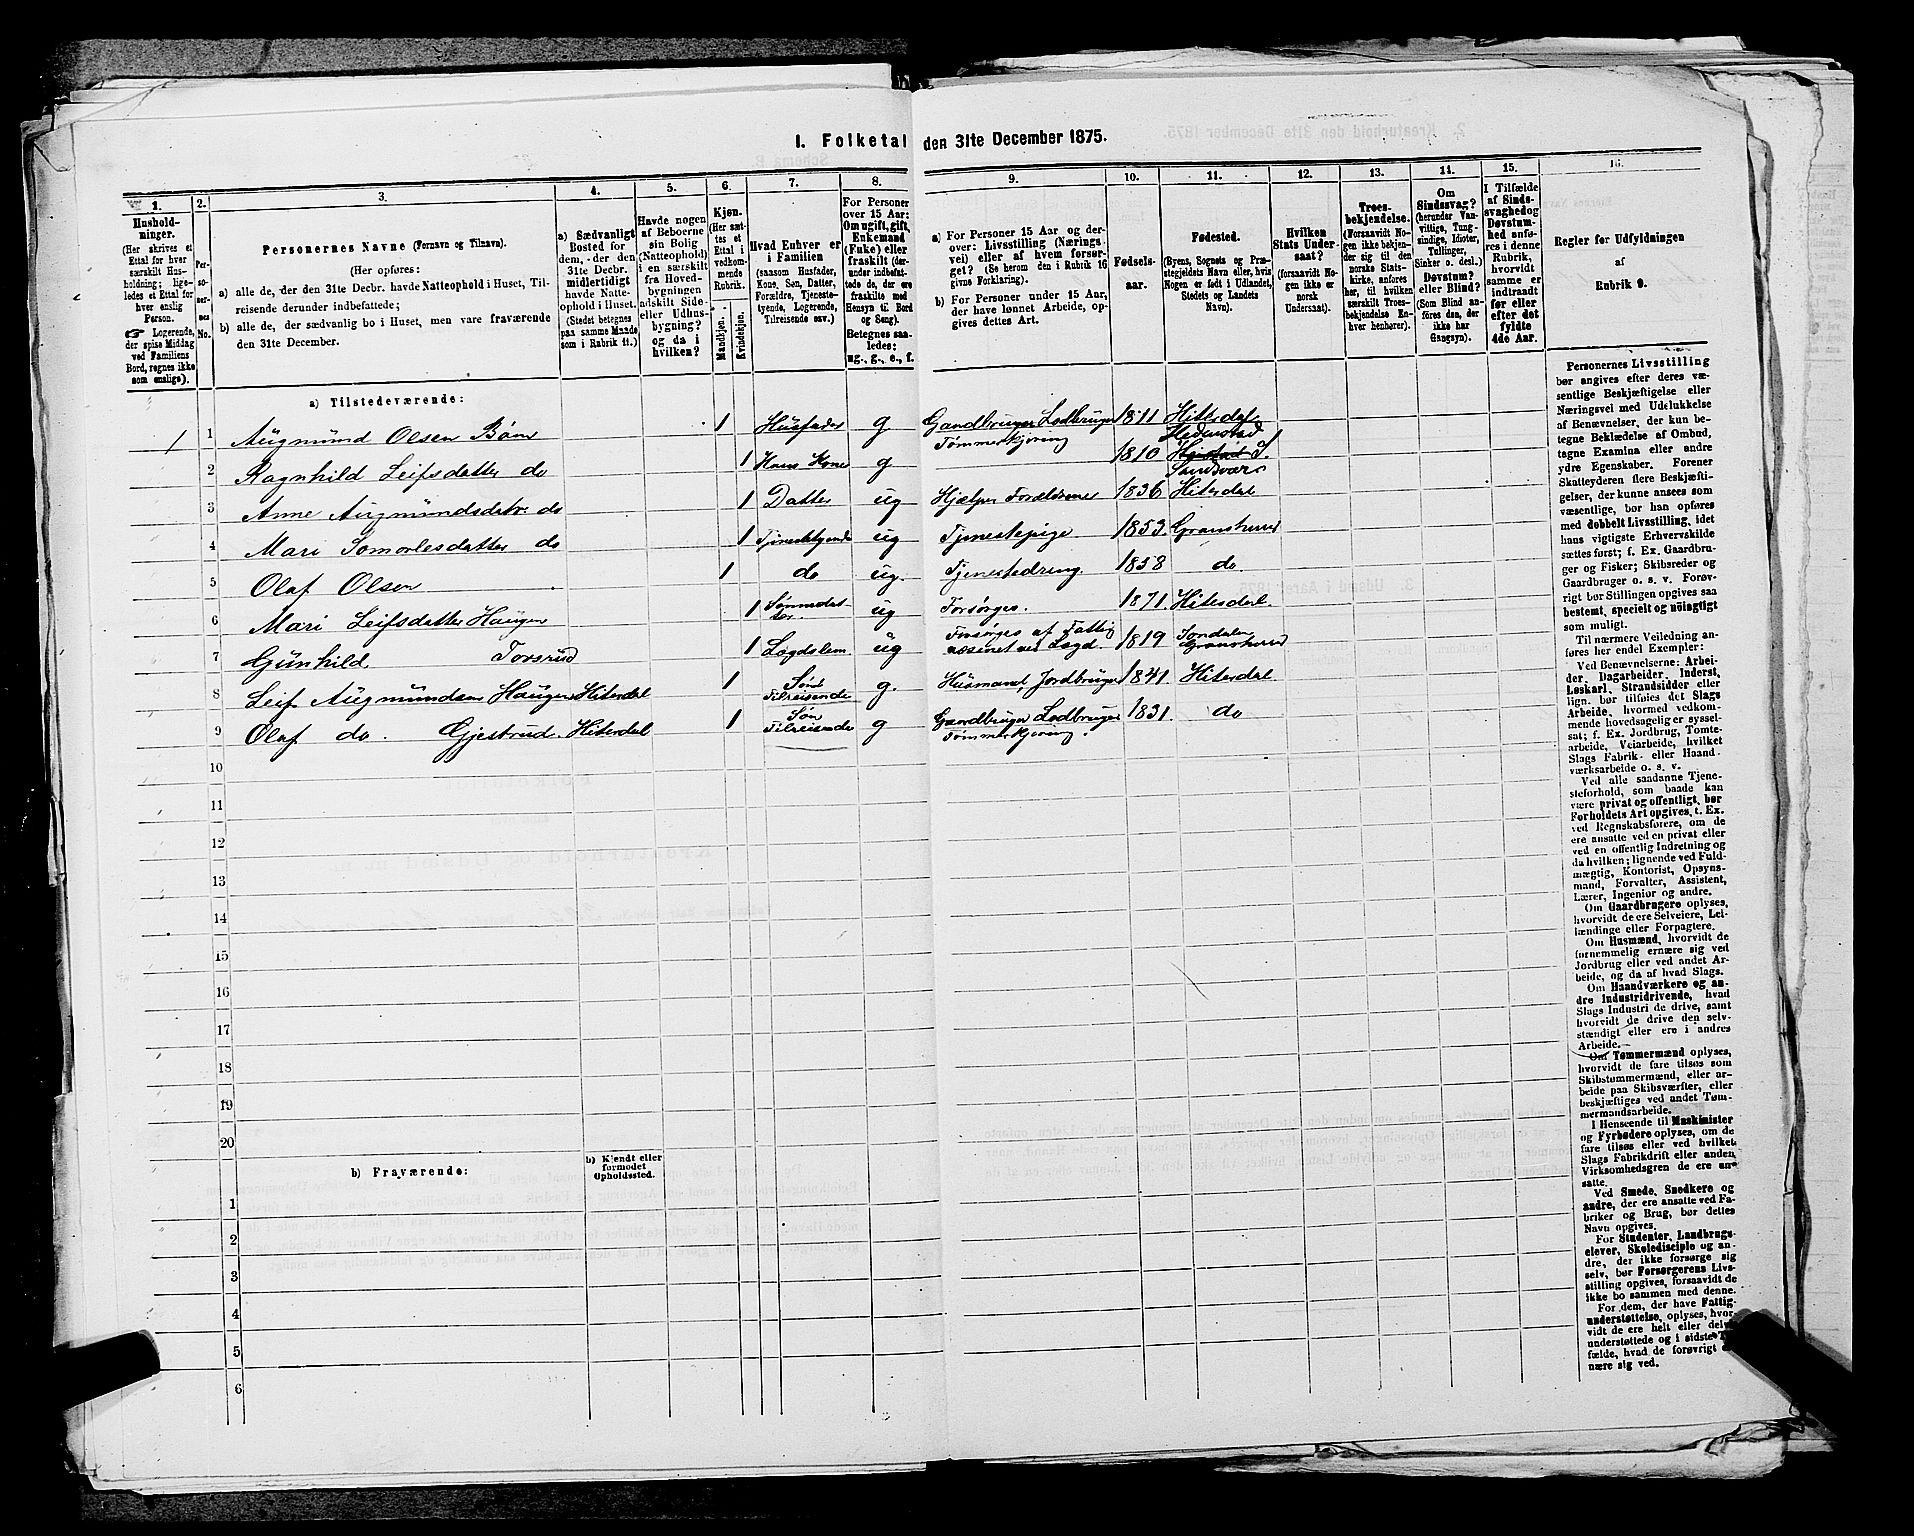 1. Folketal den 31te December 1875.
1.
Hushold-
ninger.
(Her skrives et
Ettal for hver
særskilt Hus-
holdning; lige-
ledes et Ettal for
hver enslig
Person.
Logerende,
der spise Middag
ved Familiens
Bord, regnes ikke
som enslige).
2.
Per-
so-
ner-
nes
No.
3.
Personernes Navne (Fornavn og Tilnavn).
(Her opføres:
a) alle de, der den 31te Decbr. havde Natteophold i Huset, Til-
reisende derunder indbefattede;
b) alle de, der sædvanlig bo i Huset, men vare fraværende
den 31te December.
4.
a) Sædvanligt
Bosted for
dem, der den
31te Decbr.
midlertidigt
havde Natte-
ophold i Huset.
(Stedet betegnes
paa samme Maade
som i Rubrik 11.)
5.
Havde nogen
af Beboerne
sin Bolig
(Natteophold)
i en særskilt
fra Hoved-
bygningen
adskilt Side-
eller Udhus-
bygning?
og da i
hvilken?
6.
Kjøn.
(Her sæt-
tes et
Ettal i
vedkom-
mende
Rubrik.
Mandkjøn.
Kvindekjøn.
7.
Hvad Enhver er
i Familien
(saasom Husfader,
Kone, Søn, Datter,
Forældre, Tjeneste-
tyende, Logerende,
Tilreisende osv.)
8.
For Personer
over 15 Aar:
Om ugift, gift,
Enkemand
(Enke) eller
fraskilt (der-
under indbefat-
tede de, der ere
fraskilte med
Hensyn til Bord
og Seng).
Betegnes saa-
ledes:
ug., g., e., f.
9.
a) For Personer 15 Aar og der-
over: Livsstilling (Nærings-
vei) eller af hvem forsør-
get? (Se herom den i Rubrik 16
givne Forklaring).
b) For Personer under 15 Aar,
der have lønnet Arbeide, op-
gives dettes Art.
10.
Fødsels-
aar.
11.
Fødested.
(Byens, Sognets og Præ-
stegjeldets Navn eller, hvis
Nogen er født i Udlandet,
Stedets og Landets
Navn).
12.
Hvilken
Stats Under-
saat?
(forsaavidt No-
gen ikke er
norsk
Undersaat).
13.
Troes-
bekjendelse.
(Forsaavidt No-
gen ikke bekjen-
der sig til den
norske Stats-
kirke, anføres
her, til hvilken
særskilt Troes-
bekjendelse En-
hver henhører).
14.
Om
Sindssvag?
(herunder Van-
vittige, Tung-
sindige, Idioter,
Tullinger,
Sinker o. desl.)
Døvstum?
eller Blind?
(Som Blind an-
føres den, der
ikke har
Gangsyn).
15.
I Tilfælde
af Sinds-
svaghed og
Døvstum-
hed anfø-
res i denne
Rubrik,
hvorvidt
samme er
indtraadt
før eller
efter det
fyldte
4de Aar.
16.
Regler for Udfyldningen
af
Rubrik 9.
a) Tilstedeværende:
1 1 Augmund Olsen Bøen 1 Husfader g Gaardbruger Lodbruger Tømmerkjøring 1811 Hitterdal
2 Ragnhild Leifsdatter do 1 Hans Kone g 1810 Hedenstad S. Sandsvær
3 Anne Augmundsdatr. do 1 Datter ug Hjælper Forældrene 1836 Hiterdal
4 Mari Somorlesdatter do 1 Tjenestetyende ug Tjenestepige 1853. Gransherred
5 Olaf Olsen 1 do ug. Tjenestedreng. 1858 do
6 Mari Leifsdatter Haugen 1 Sønnedatter. ug Forsørges. 1871. Hiterdal.
7 Gunhild Torsrud 1 Lægdslem ug Forsørges af Fattigvæsenet ved Lægd. 1819 Jondalen Gransherred
8 Leif Augmundsen Haugen Hiterdal 1 Søn Tilreisende g. Husmand, Jordbruger 1841. Hiterdal
9 Olaf do. Gjestrud. Hiterdal 1 Søn Tilreisende g Gaardbruger Lodbruger Tømmerkjøring. 1831. do
10
11
12
13
14
15
16
17
18
19
20
b) Fraværende:
b) Kjendt eller
formodet
Opholdssted.
1
2
3
4
5
6
Personernes Livsstilling
bør angives efter deres væ-
sentlige Beskjæftigelse eller
Næringsvei med Udelukkelse
af Benævnelser, der kun be-
tegne Beklædelse af Ombud,
tagne Examina eller andre
ydre Egenskaber. Forener
Skatteyderen flere Beskjæfti-
gelser, der kunne ansees som
væsentlige, bør han opføres
med dobbelt Livsstilling, idet
hans vigtigste Erhvervskilde
sættes først; f. Ex. Gaardbru-
ger og Fisker; Skibsreder og
Gaardbruger o. s. v. Forøv-
rigt bør Stillingen opgives saa
bestemt, specielt og nøiagtigt
som muligt.
Til nærmere Veiledning an-
føres her endel Exempler:
Ved Benævnelserne: Arbei-
der, Dagarbeider, Inderst,
Løskarl, Strandsidder eller
lign. bør tilføies det Slags
Arbeide, hvormed vedkom-
mende hovedsagelig er syssel-
sat; f. Ex. Jordbrug, Tomte-
arbeide, Veiarbeide, hvilket
Slags Fabrik- eller Haand-
værksarbeide o. s. v.
Ved alle saadanne Tjene-
steforhold, som baade kan
være privat og offentligt, bør
Forholdets Art opgives, t. Ex.
ved Regnskabsførere, om de
ere ansatte ved en privat eller
ved en offentlig Indretning og
da hvilken; lignende ved Fuld-
mægtig, Kontorist, Opsyns-
mand, Forvalter, Assistent,
Lærer, Ingeniør og andre.
Om Gaardbrugere oplyses,
hvorvidt de ere Selveiere, Lei-
lændinge eller Forpagtere.
Om Husmænd, hvorvidt de
fornemmelig ernære sig ved
Jordbrug eller ved andet Ar-
beide, og da af hvad Slags.
Om Haandværkere og an-
dre Industridrivende, hvad
Slags Industri de drive, samt
hvorvidt de drive den selv-
stændigt eller ere i andres
Arbeide.
Om Tømmermænd oplyses,
hvorvidt de fare tilsøs som
Skibstømmermænd, eller ar-
beide paa Skibsværfter, eller
beskjæftiges ved andet Tøm-
mermandsarbeide.
I Henseende til Maskinister
og Fyrbødere oplyses, om de
fare tilsøs eller ved hvilket
Slags Fabrikdrift eller anden
Virksomhedsgren de ere an-
satte.
Ved Smede, Snedkere og
andre, der ere ansatte ved Fa-
briker og Brug, bør dettes
Navn opgives.
For Studenter, Landbrugs-
elever, Skoledisciple og an-
dre, der ikke forsørge sig
selv, bør Forsørgerens Livs-
stilling opgives, forsaavidt de
ikke bo sammen med denne.
For dem, der have Fattig-
understøttelse, oplyses, hvor-
vidt de ere helt eller delvis
understøttede og i sidste Til-
fælde, hvad de forøvrigt er-
nære sig ved.